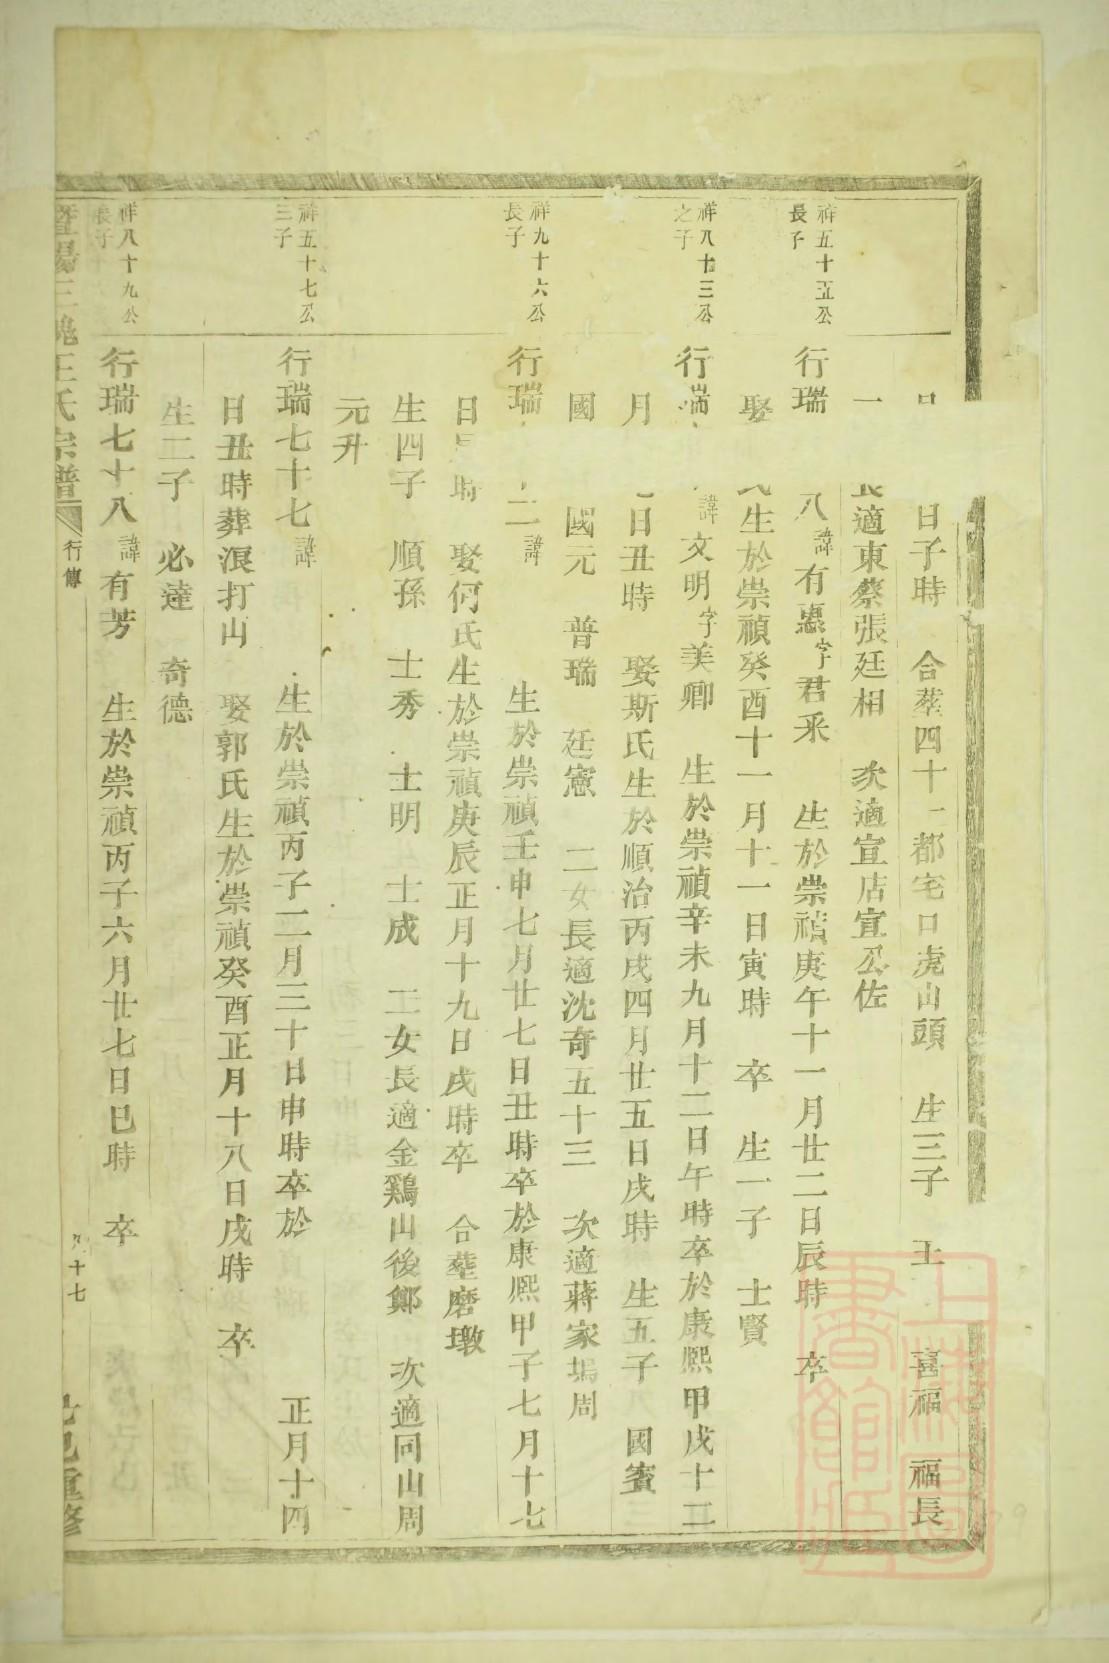 日子時 合塟四十一都宅口虎山頭 生三子 王 喜福 福長
一 長適東蔡張廷相 次適宣店宣公佐
祥五十五公
長子
行瑞 八 諱有惠字君釆 生於崇禎庚午十一月廿二日辰時 卒
娶 氏生於崇禎癸酉十一月十一日寅時 卒 生一子 士賢
祥八十三公
之子
行瑞 諱文明字美卿 生於崇禎辛未九月十二日午時卒於康熙甲戌十二
月 日丑時 娶斯氏生於順治丙戌四月廿五日戌時 生五子 國賓
國 國元 普瑞 廷憲 二女長適沈奇五十三 次適蔣家塢周
祥九十六公
長子
行瑞 二 諱 生於崇禎壬申七月廿七日丑時卒於康熙甲子七月十七
日 時 娶何氏生於崇禎庚辰正月十九日戌時卒 合塟磨墩
生四子 順孫 士秀 士明 士成 二女長適金鷄山後鄭 次適同山周
元升
祥五十七公
三子
行瑞七十七 諱 生於崇禎丙子二月三十日申時卒於 正月十四
日丑時葬泿打山 娶郭氏生於崇禎癸酉正月十八日戌時 卒
生二子 必達 奇德
祥八十九公
長子
行瑞七十八 諱有芳 生於崇禎丙子六月廿七日巳時 卒
暨陽三槐王氏宗譜 行傳 十七 重修
上海圖書館藏